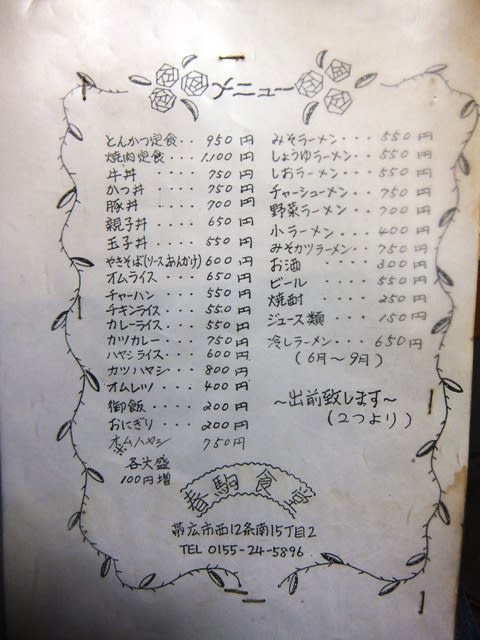 メニュー
とんかつ定食・・950円
焼肉定食・・・1,100円
牛丼・・・・750円
かつ丼・・・・750円
豚丼・・・・700円
親子丼・・・650円
玉子丼・・・・550円
やきそば(ソース,あんかけ)600円
オムライス・・・650円
チャーハン・・・550円
チキンライス・・・550円
カレーライス・・・550円
カツカレー・・・750円
ハヤシライス・・・600円
カツハヤシ・・・800円
オムレツ・・・400円
御飯・・・・200円
おにぎり・・・200円
オムハヤシ 750円
※各大盛
100円増
みそラーメン・・・550円
しょうゆラーメン・・550円
しおラーメン・・・550円
チャーシューメン・・750円
野菜ラーメン・・・700円
小ラーメン・・・400円
みそカツラーメン・・750円
お酒・・・・300円
ビール・・・・550円
焼酎・・・・250円
ジュース類・・・150円
冷しラーメン・・・650円
(6月~9月)
~出前致します~
(2つより)
春駒食堂
帯広市西12条南15丁目2
TEL 0155-24-5896